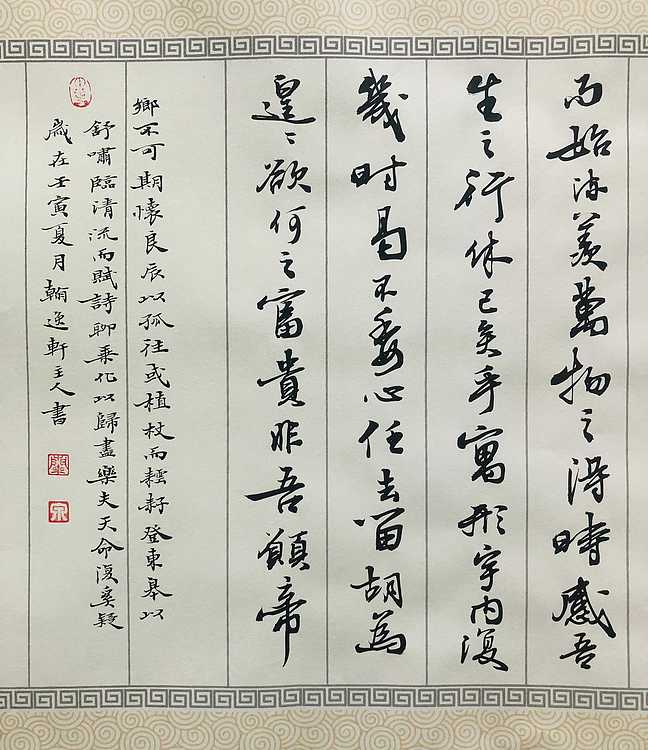 而始流羨萬物之得時感吾
生之行休已矣乎寓形宇内復
幾时曷不委心任去留胡為
遑〻欲何之富貴非吾願帝
鄉不可期懷良辰以孤往或植杖而耘耔登東皋以
舒嘯臨清流而賦詩聊乘化以歸盡樂夫天命復奚疑
歲在壬寅夏月翰逸軒主人書